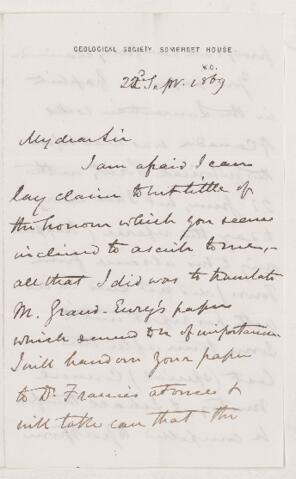 GEOLOGICAL SOCIETY, SOMERSET HOUSE.
W.C.
22nd Sept. 1869
My dear Sir
I am afraid I can
lay claim to but little of
the honour which you seem
inclined to ascribe to me,-
all that I did was to translate
M. Grand-Eury's paper
which seemed to be of importance.
I will hand on your paper
to Dr. Francis at once &
will take care that the